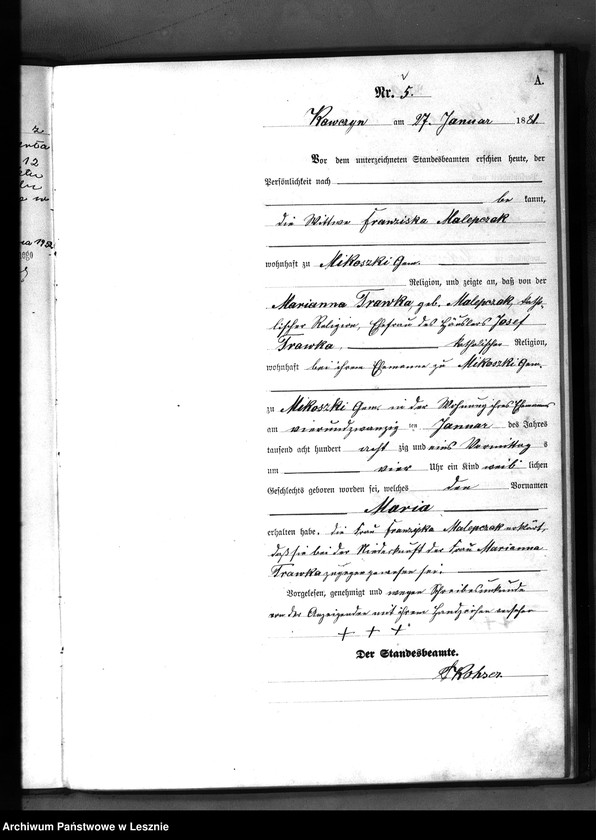 A.
Nr. 5.
Kowczyn am 27. Januar 1881.
Vor dem unterzeichneten Standesbeamten erschien heute, der
Persönlichkeit nach
be kannt,
die Wittwe Franziska Malepszak
wohnhaft zu Mikoszki Gem.
Religion, und zeigte an, daß von der
Marianna Trawka, geb. Malepszak, katho-
lischer Religion, Ehefrau des Häuslers Josef
Trawka, katholischer Religion,
wohnhaft bei ihrem Ehemanne zu Mikoszki Gem.
zu Mikoszki Gem. in der Wohnung ihres Ehemannes
am vierundzwanzig ten Januar des Jahres
tausend acht hundert acht zig und eins Vormittag s
um vier Uhr ein Kind weib lichen
Geschlechts geboren worden sei, welches den Vornamen
Maria
erhalten habe. Die Frau Franziska Malepszak erklärt,
daß sie bei der Niederkunft der Frau Marianna
Trawka zugegen gewesen sei.
Vorgelesen, genehmigt und wegen Schreibensunkunde
von der Anzeigenden mit ihrem Handzeichen versehen
+ + +
Der Standesbeamte.
Rohrer
Archiwum Państwowe w Lesznie